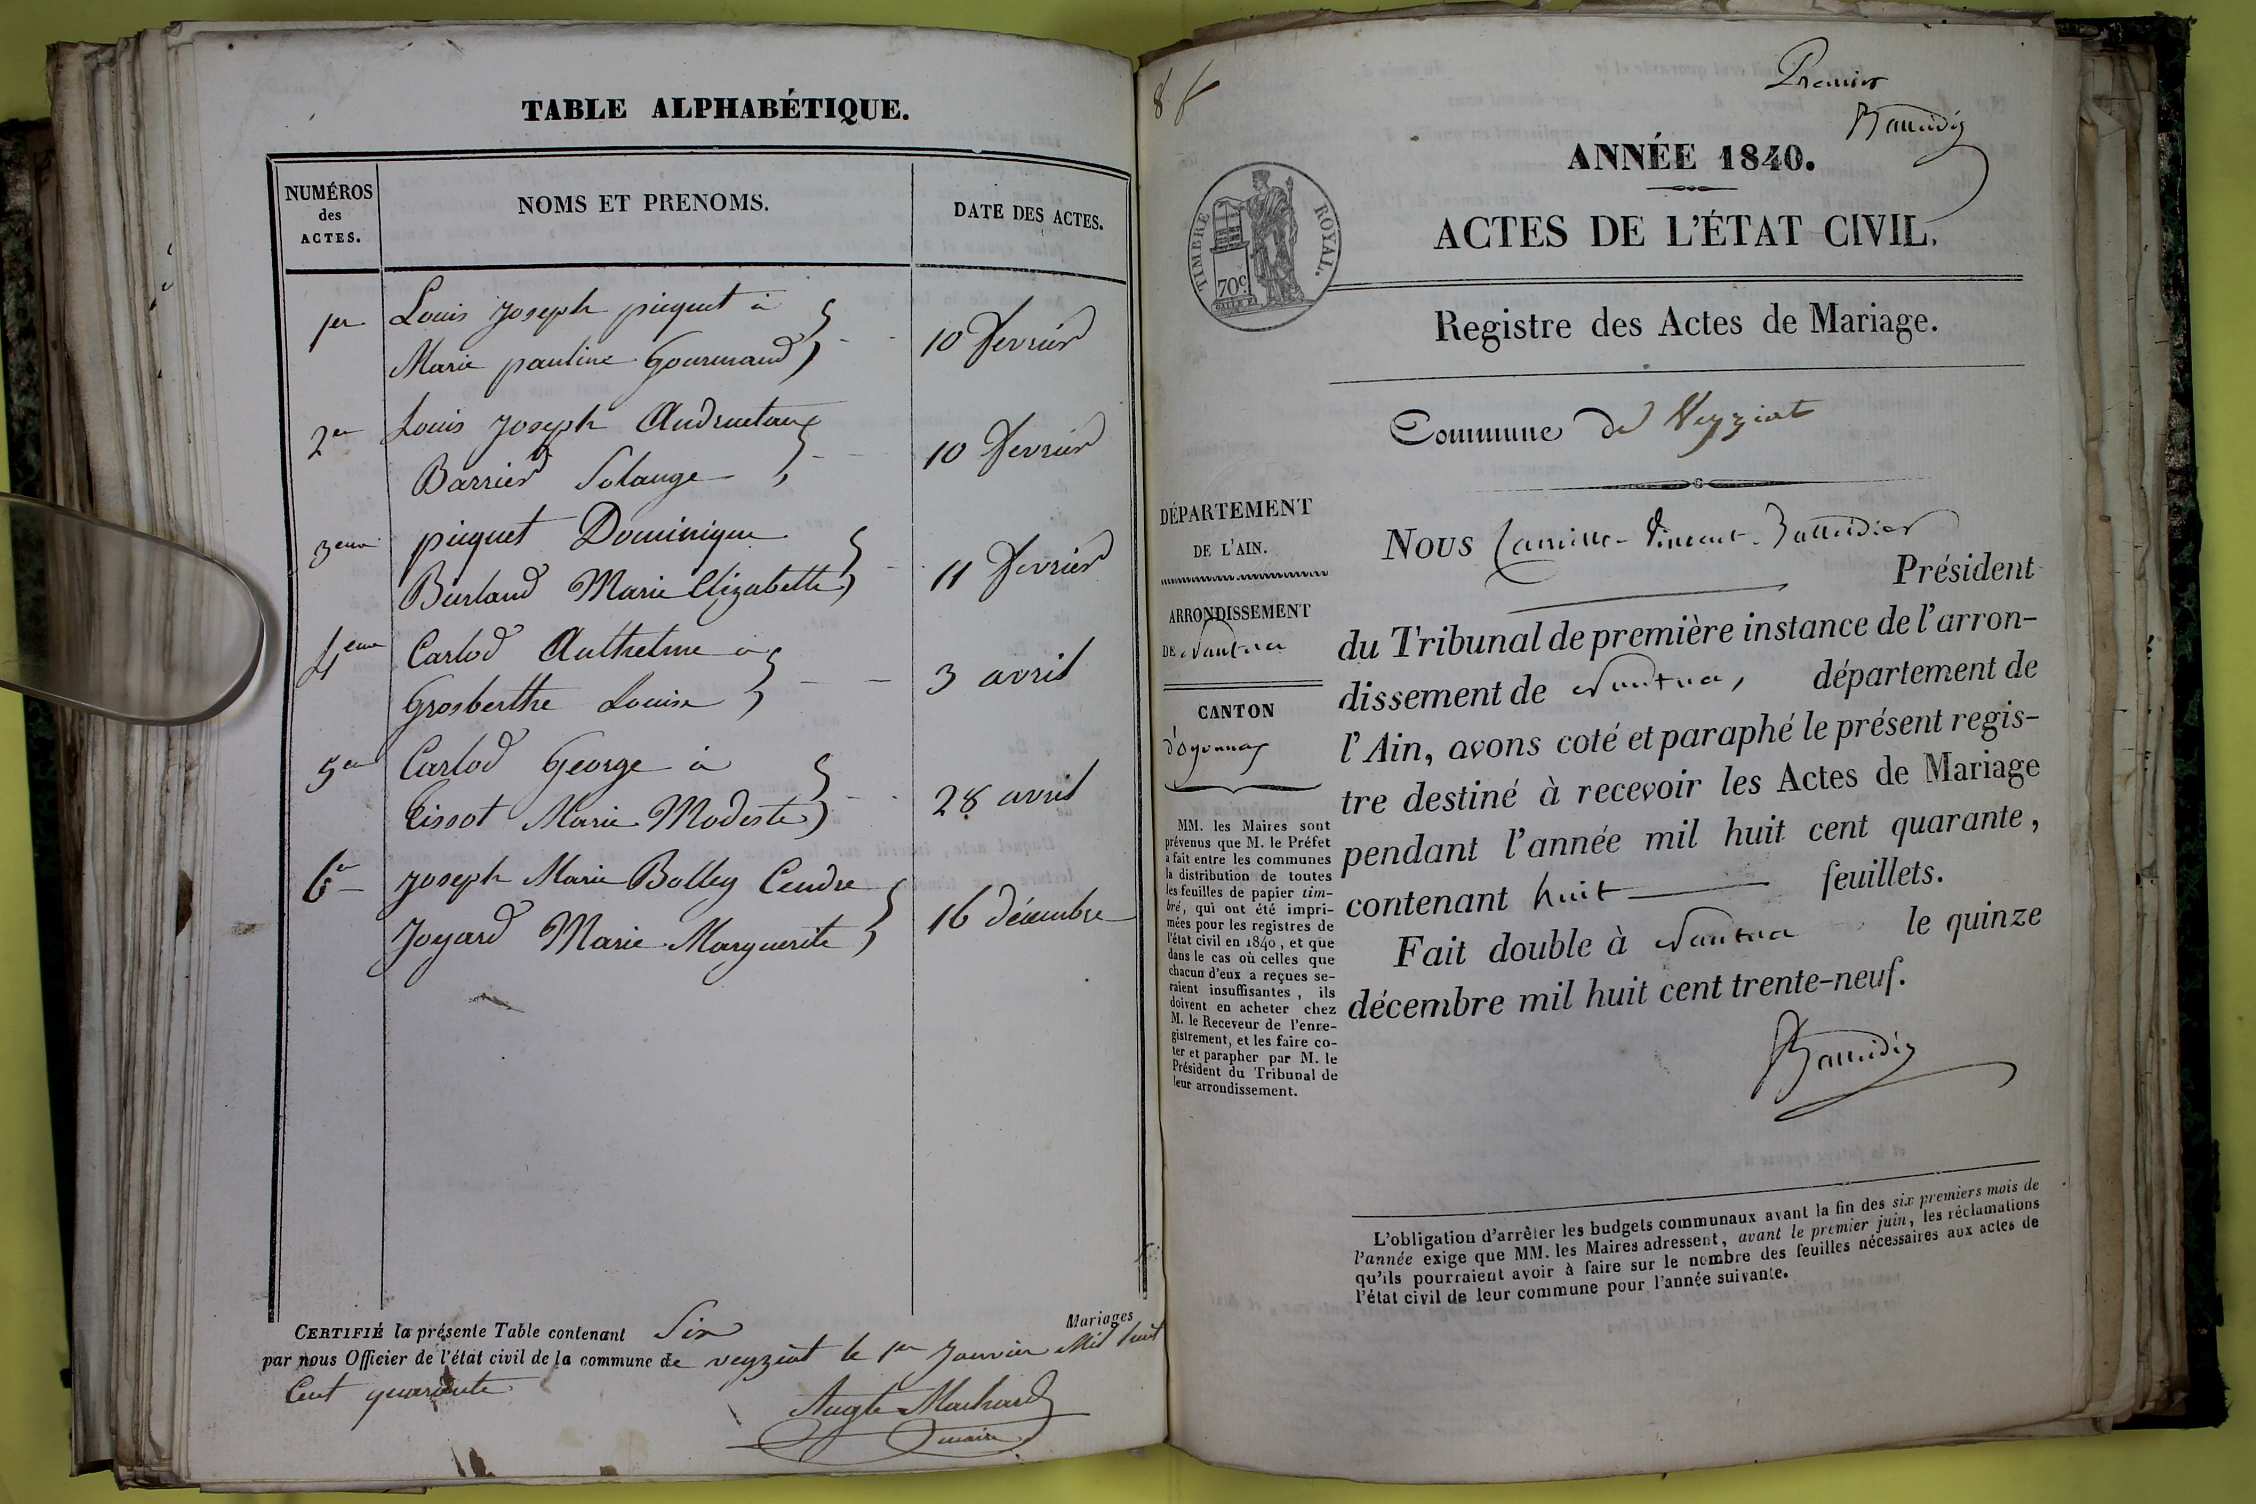 TABLE ALPHABÉTIQUE.
NUMÉROS
des
ACTES.
NOMS ET PRENOMS.
DATE DES ACTES.
1er Louis Joseph piquet à
Marie pauline Gourmand
10 fevrier
2e Louis Joseph Andruetaux
Barrier Solange
10 fevrier
3eme piquet Dominique
Burland Marie Elizabette
11 fevrier
4eme Carlod Anthelme à
Grosberthe Louise
3 avril
5e Carlod George à
Tissot Marie Modeste
28 avril
6e Joseph Marie Bolley Cendre
Joyard Marie Marguerite
16 décembre
CERTIFIÉ la présente Table contenant Six Mariages
par nous Officier de l'état civil de la commune de veyziat le 1er Janvier Mil huit
Cent quarante
Augte Machard
maire
Premier
ANNÉE 1840.
TIMBRE ROYAL.
70c
ACTES DE L'ÉTAT CIVIL.
Registre des Actes de Mariage.
Commune de Veyziat
DÉPARTEMENT
DE L'AIN.
ARRONDISSEMENT
DE Nantua
CANTON
d'oyonnax
MM. les Maires sont
prévenus que M. le Préfet
a fait entre les communes
la distribution de toutes
les feuilles de papier tim-
bré, qui ont été impri-
mées pour les registres de
l'état civil en 1840, et que
dans le cas où celles que
chacun d'eux a reçues se-
raient insuffisantes, ils
doivent en acheter chez
M. le Receveur de l'enre-
gistrement, et les faire co-
ter et parapher par M. le
Président du Tribunal de
leur arrondissement.
Nous Camille-Vincent-
Président
du Tribunal de première instance de l'arron-
dissement de Nantua, département de
l'Ain, avons coté et paraphé le présent regis-
tre destiné à recevoir les Actes de Mariage
pendant l'année mil huit cent quarante,
contenant huit feuillets.
Fait double à Nantua le quinze
décembre mil huit cent trente-neuf.
L'obligation d'arrêter les budgets communaux avant la fin des six premiers mois de
l'année exige que MM. les Maires adressent, avant le premier juin, les réclamations
qu'ils pourraient avoir à faire sur le nombre des feuilles nécessaires aux actes de
l'état civil de leur commune pour l'année suivante.